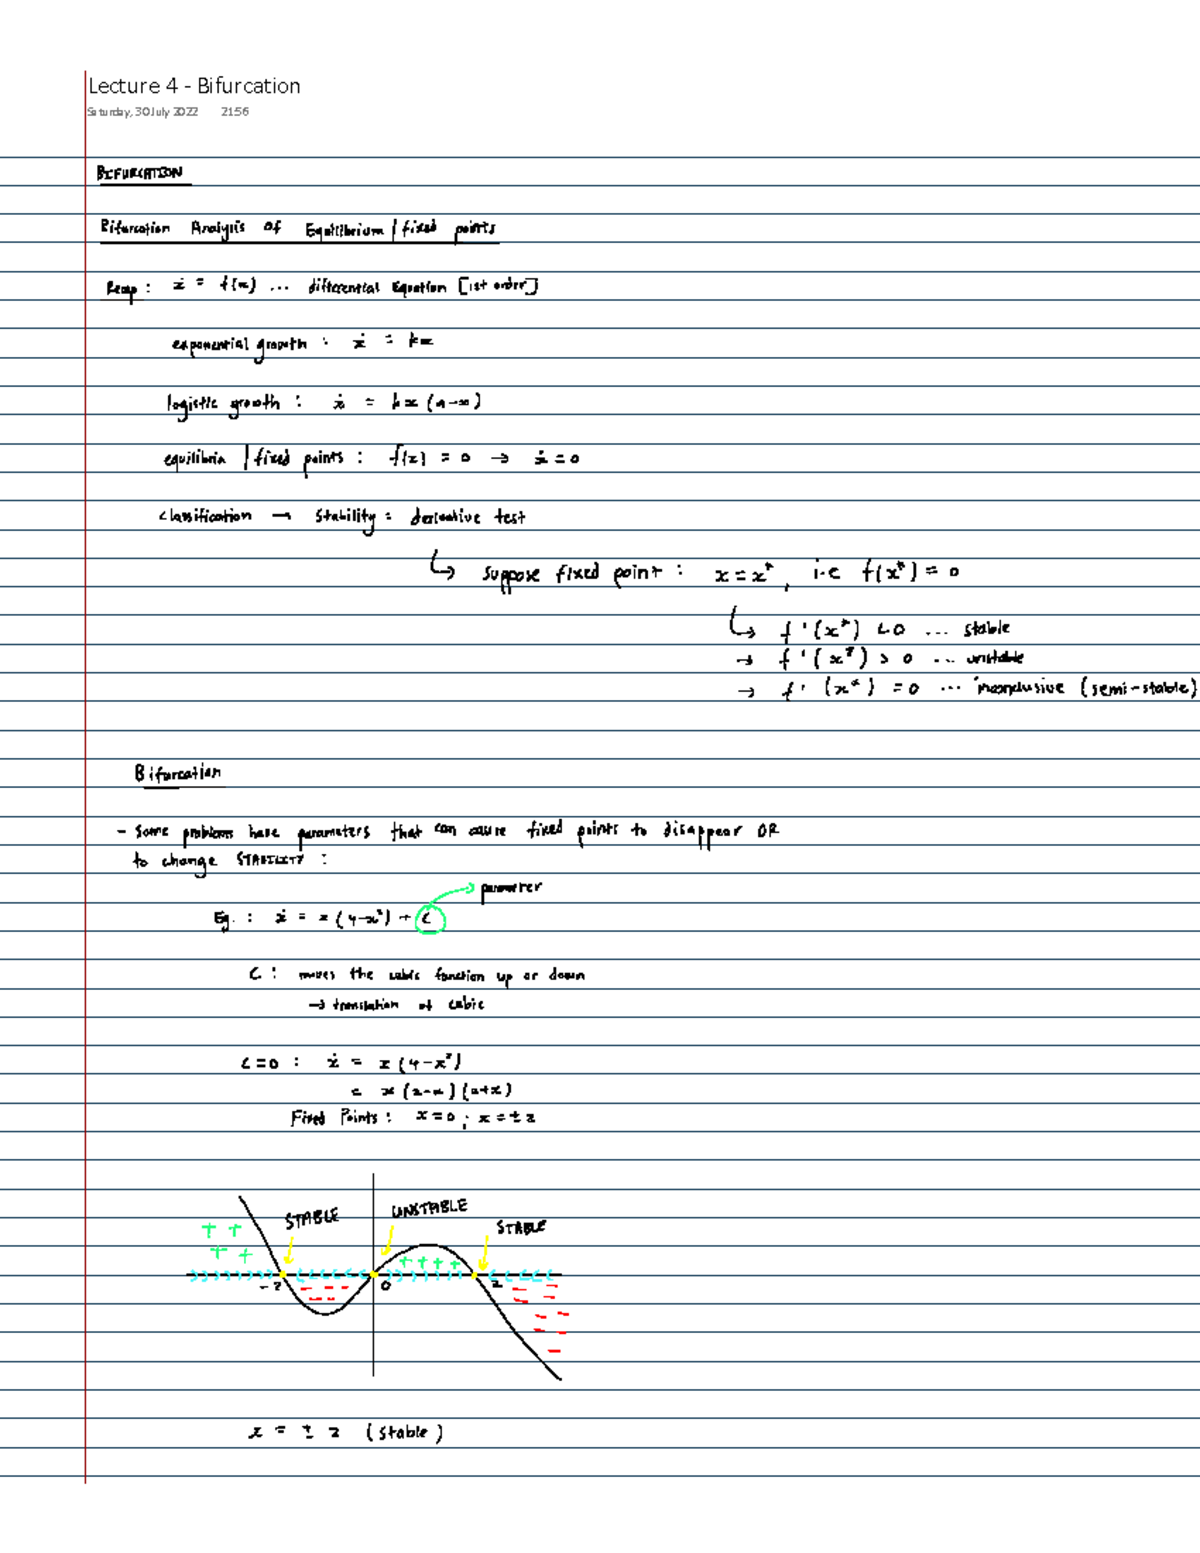 Lecture 4 - Bifurcation
Saturday, 30 July 2022 21:56
BIFURCATION
Bifurcation Analysis of Equilibrium / fixed points
Recap : ẋ = f(x) ... differential Equation [1st order]
exponential growth : ẋ = kx
logistic growth : ẋ = kx (a-x)
equilibria / fixed points : f(x) = 0 → ẋ = 0
Classification → Stability : derivative test
↳ suppose fixed point : x = x*, i.e f(x*) = 0
↳ f'(x*) < 0 ... stable
→ f'(x*) > 0 ... unstable
→ f'(x*) = 0 ... inconclusive (semi-stable)
Bifurcation
- Some problems have parameters that can cause fixed points to disappear OR
to change STABILITY :
parameter
Eg. : ẋ = x(4-x²) + c
C : moves the cubic function up or down
→ translation of cubic
c = 0 : ẋ = x(4-x²)
= x(2-x)(2+x)
Fixed Points : x = 0 ; x = ± 2
STABLE UNSTABLE STABLE
-2 0 2
x = ± 2 (stable)